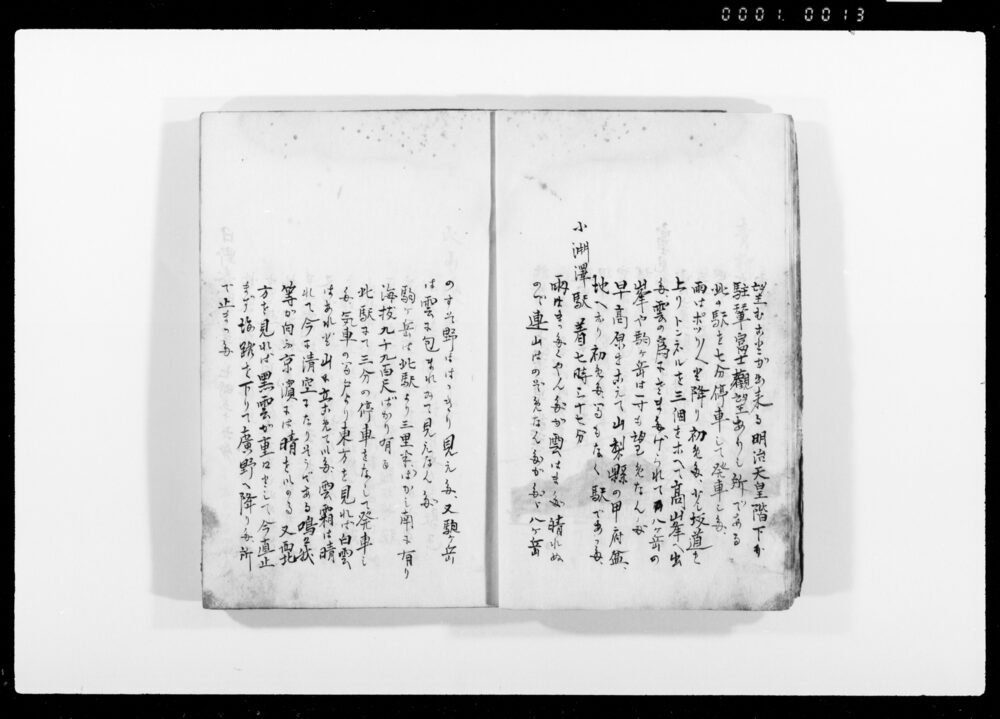 0001. 0013
望むことが出来る 明治天皇階下が
駐輦富士觀望ありし所である
此の駅を七分停車して発車した、
雨はポツリ〱と降り初めた、少し坂道を
上りトンネルを三個をこへて高峯へ出
た 雲の為にさまたげられて八ヶ岳の
峯や駒ヶ岳は一寸も望めなんだ
早高原をこえて山梨縣の甲府盆
地へ入り初めた、間もなく駅であった、
小渊澤駅 着七時三十七分
雨はまったくやんだが雲はまだ晴れぬ
ので連山はのぞめなんだが、八ヶ岳
のすそ野ははっきり見えた、又駒ヶ岳
は雲に包まれて見えなんだ
駒ヶ岳は此駅より三里余ばかし南に有り
海抜九千九百尺ばかり有る
此駅にて三分の停車をなして発車し
た 気車の窓より東方を見れば白雲
はあれ共山も立おえている 雲霧は晴
れて今に清空になりそうである 鳴呼我
等が向ふ京濱には晴をいのる 又西北
方を見れば黒雲が重々として今直止
まず 坂路を下りて廣野へ降りた所
で止まった